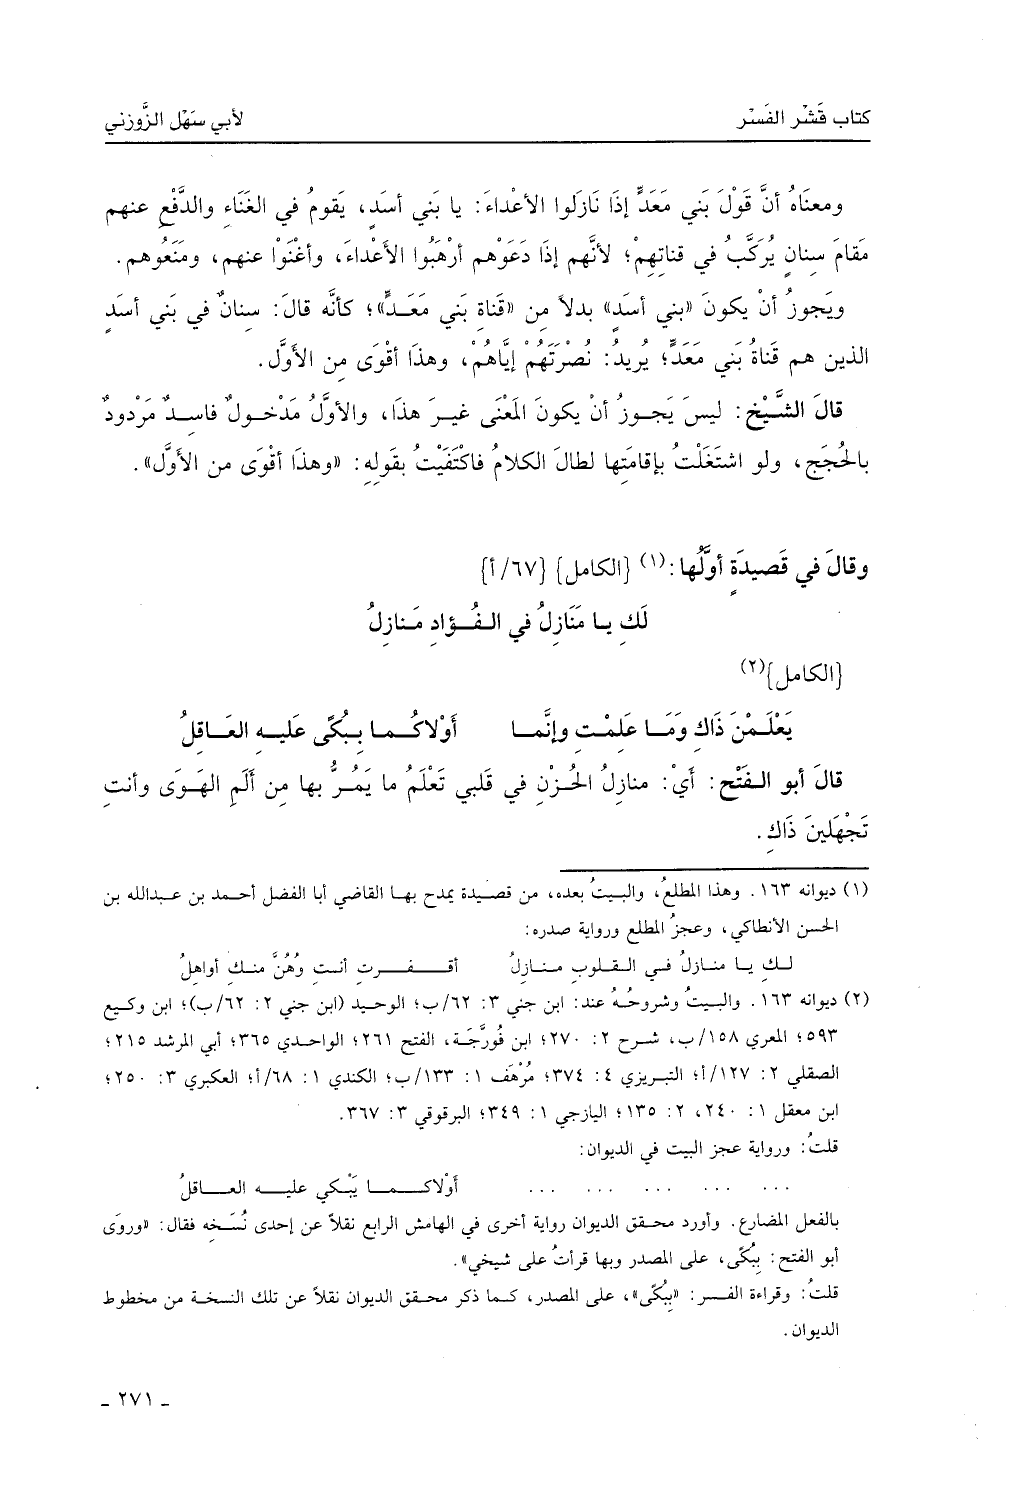 كتاب قَشْر الفَسْر لأبي سَهْل الزَّوزني
ومعنَاهُ أنَّ قَوْلَ بَني مَعَدٍّ إذَا نَازَلوا الأعْداءَ: يا بَني أسَدٍ، يَقومُ في الغَنَاءِ والدَّفْعِ عنهم
مَقامَ سِنانٍ يُرَكَّبُ في قناتِهِمْ؛ لأنَّهم إذَا دَعَوْهم أرْهَبُوا الأعْداءَ، وأغْنَوْا عنهم، ومَنَعُوهم.
ويَجوزُ أنْ يكونَ «بني أسَدٍ» بدلاً مِن «قَناةِ بَني مَعَـدٍّ»؛ كأنَّه قالَ: سِنانٌ في بَني أسَدٍ
الذين هم قَناةُ بَني مَعَدٍّ؛ يُريدُ: نُصْرَتَهُمْ إيَّاهُمْ، وهذَا أقْوَى مِن الأوَّل.
قالَ الشَّيْخ: ليسَ يَجـوزُ أنْ يكونَ المَعْنَى غيـرَ هذَا، والأوَّلُ مَدْخـولٌ فاسـدٌ مَرْدودٌ
بالحُجَجِ، ولو اشتَغَلْتُ بإقامَتِها لطالَ الكلامُ فاكْتَفَيْتُ بقَولِهِ: «وهذَا أقْوَى من الأَوَّل».
وقالَ في قَصيدَةٍ أوَّلُها:(١) {الكامل} {٦٧/أ}
لَكِ يـا مَنَازِلُ في الـفُـؤادِ مَـنازِلُ
{الكامل}(٢)
يَعْلَـمْنَ ذَاكِ وَمَـا عَلِمْـتِ وإنَّمـا أَوْلاكُـمـا بِـبُكًى عَليـهِ العَـاقلُ
قالَ أبو الـفَتْح: أيْ: منازلُ الحُـزْنِ في قَلبي تَعْلَمُ ما يَمُـرُّ بها مِن أَلَمِ الهَـوَى وأنتِ
تَجْهَلينَ ذَاكِ.
(١) ديوانه ١٦٣. وهذا المطلعُ، والبـيتُ بعده، من قصـيدة يمدح بهـا القاضي أبا الفضل أحـمد بن عبـدالله بن
الحسن الأنطاكي، وعجزُ المطلع ورواية صدره:
لـكِ يـا منـازلُ فـي القـلوبِ منـازلُ أقـفـرتِ أنتِ وهُنَّ منـكِ أواهلُ
(٢) ديوانه ١٦٣. والبيتُ وشروحُـهُ عند: ابن جني ٣: ٦٢/ب؛ الوحيد (ابن جني ٢: ٦٢/ب)؛ ابن وكيع
٥٩٣؛ المعري ١٥٨/ب، شـرح ٢: ٢٧٠؛ ابن فُورَّجَـة، الفتح ٢٦١؛ الواحـدي ٣٦٥؛ أبي المرشد ٢١٥؛
الصقلي ٢: ١٢٧/أ؛ التبـريزي ٤: ٣٧٤؛ مُرْهَف ١: ١٣٣/ب؛ الكندي ١: ٦٨/أ؛ العكبري ٣: ٢٥٠؛
ابن معقل ١: ٢٤٠، ٢: ١٣٥؛ اليازجي ١: ٣٤٩؛ البرقوقي ٣: ٣٦٧.
قلتُ: ورواية عجز البيت في الديوان:
... ... ... ... ... أَوْلاكـمـا يَبْـكي عليـه العـاقلُ
بالفعل المضارع. وأورد محـقق الديوان رواية أخرى في الهامش الرابع نقلاً عن إحدى نُسَـخه فقال: «وروَى
أبو الفتح: بِبُكًى، على المصدر وبها قرأتُ على شيخي».
قلتُ: وقراءة الفسـر: «بِبُكًى»، على المصدر، كـما ذكر محـقق الديوان نقلاً عن تلك النسخة من مخطوط
الديوان.
ـ ٢٧١ ـ